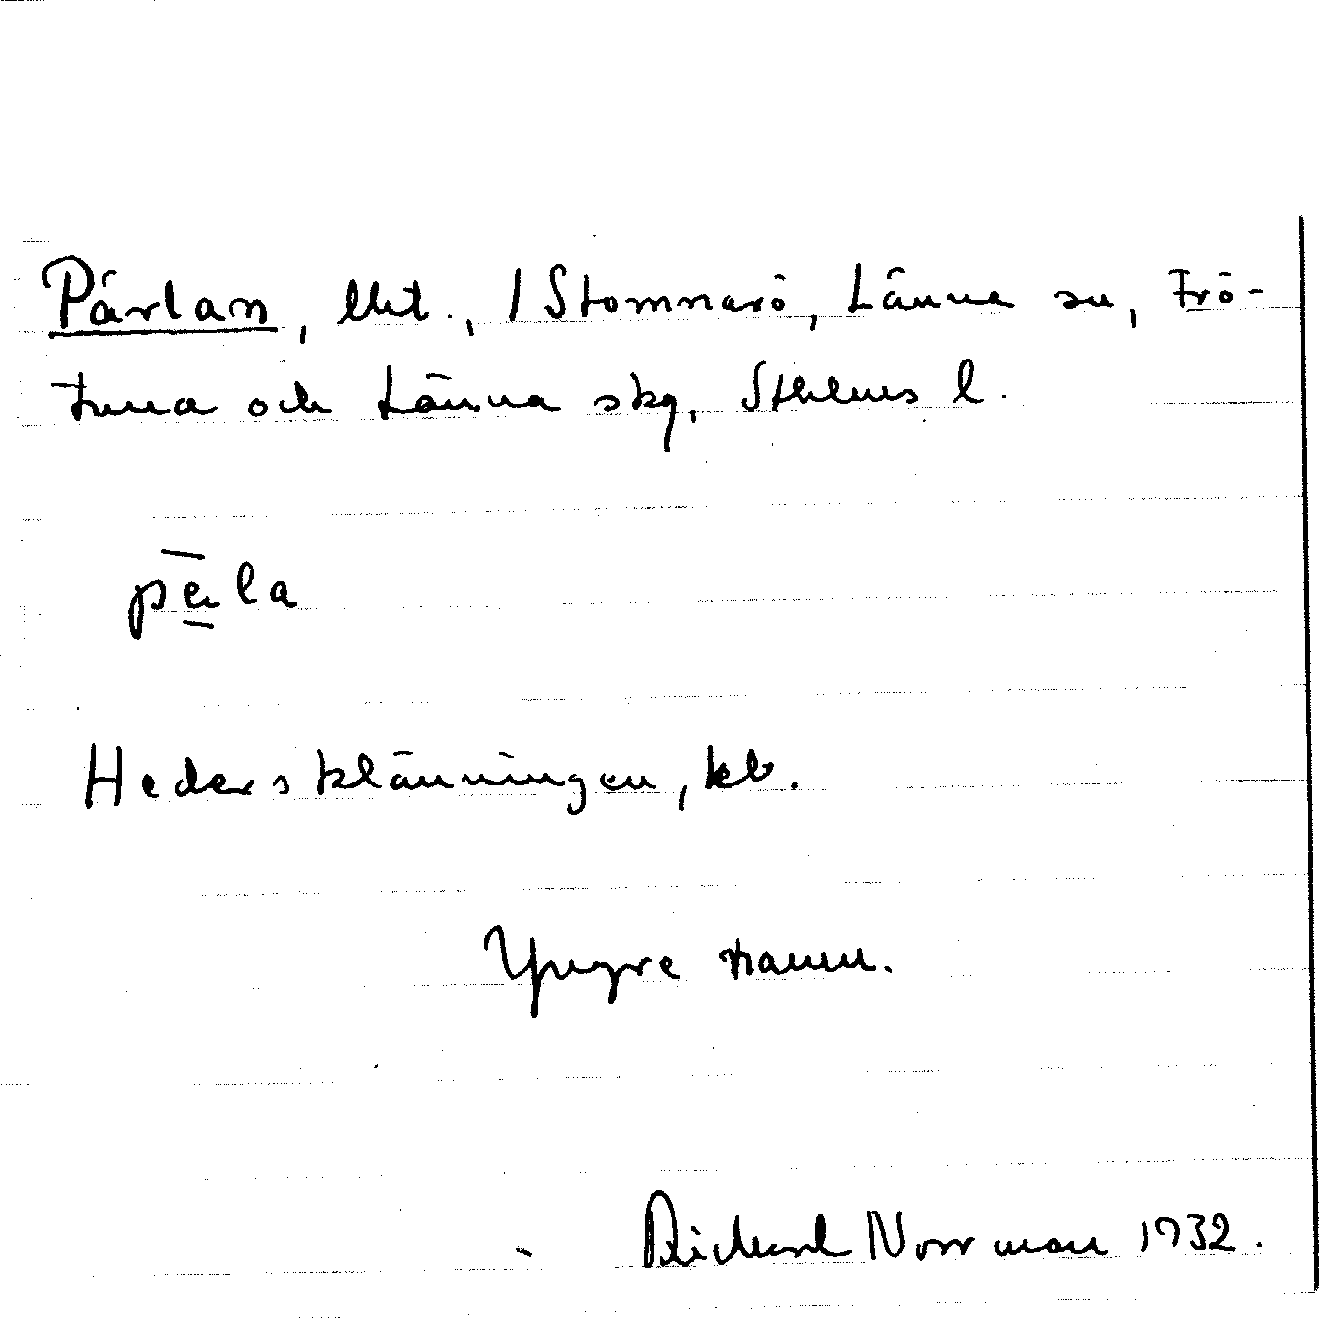 Pärlan, lht., / Stomnarö, Länna sn, Frö-
tuna och Länna skg, Sthlms l.
pæla
Hedersklänningen, kb.
Yngre namn.
Richard Norrman 1932.